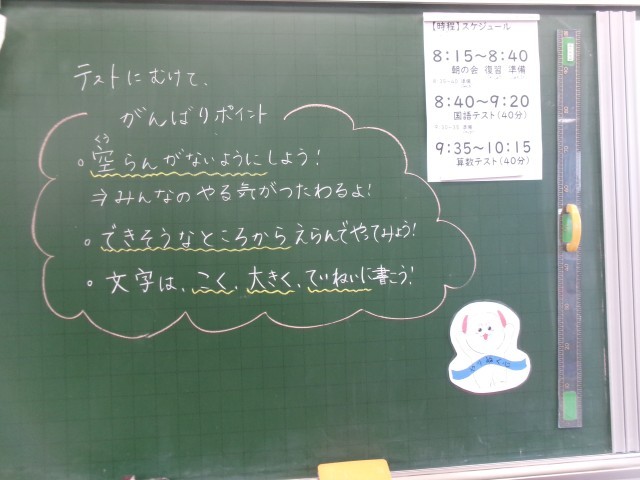 テストにむけて、
がんばりポイント
くう
・空らんがないようにしよう!
⇒みんなのやる気がつたわるよ!
・できそうなところからえらんでやってみよう!
・文字は、こく、大きく、ていねいに書こう!
【時程】スケジュール
8:15～8:40
朝の会 復習 準備
8:40～9:20
国語テスト(40分)
9:35～10:15
算数テスト(40分)